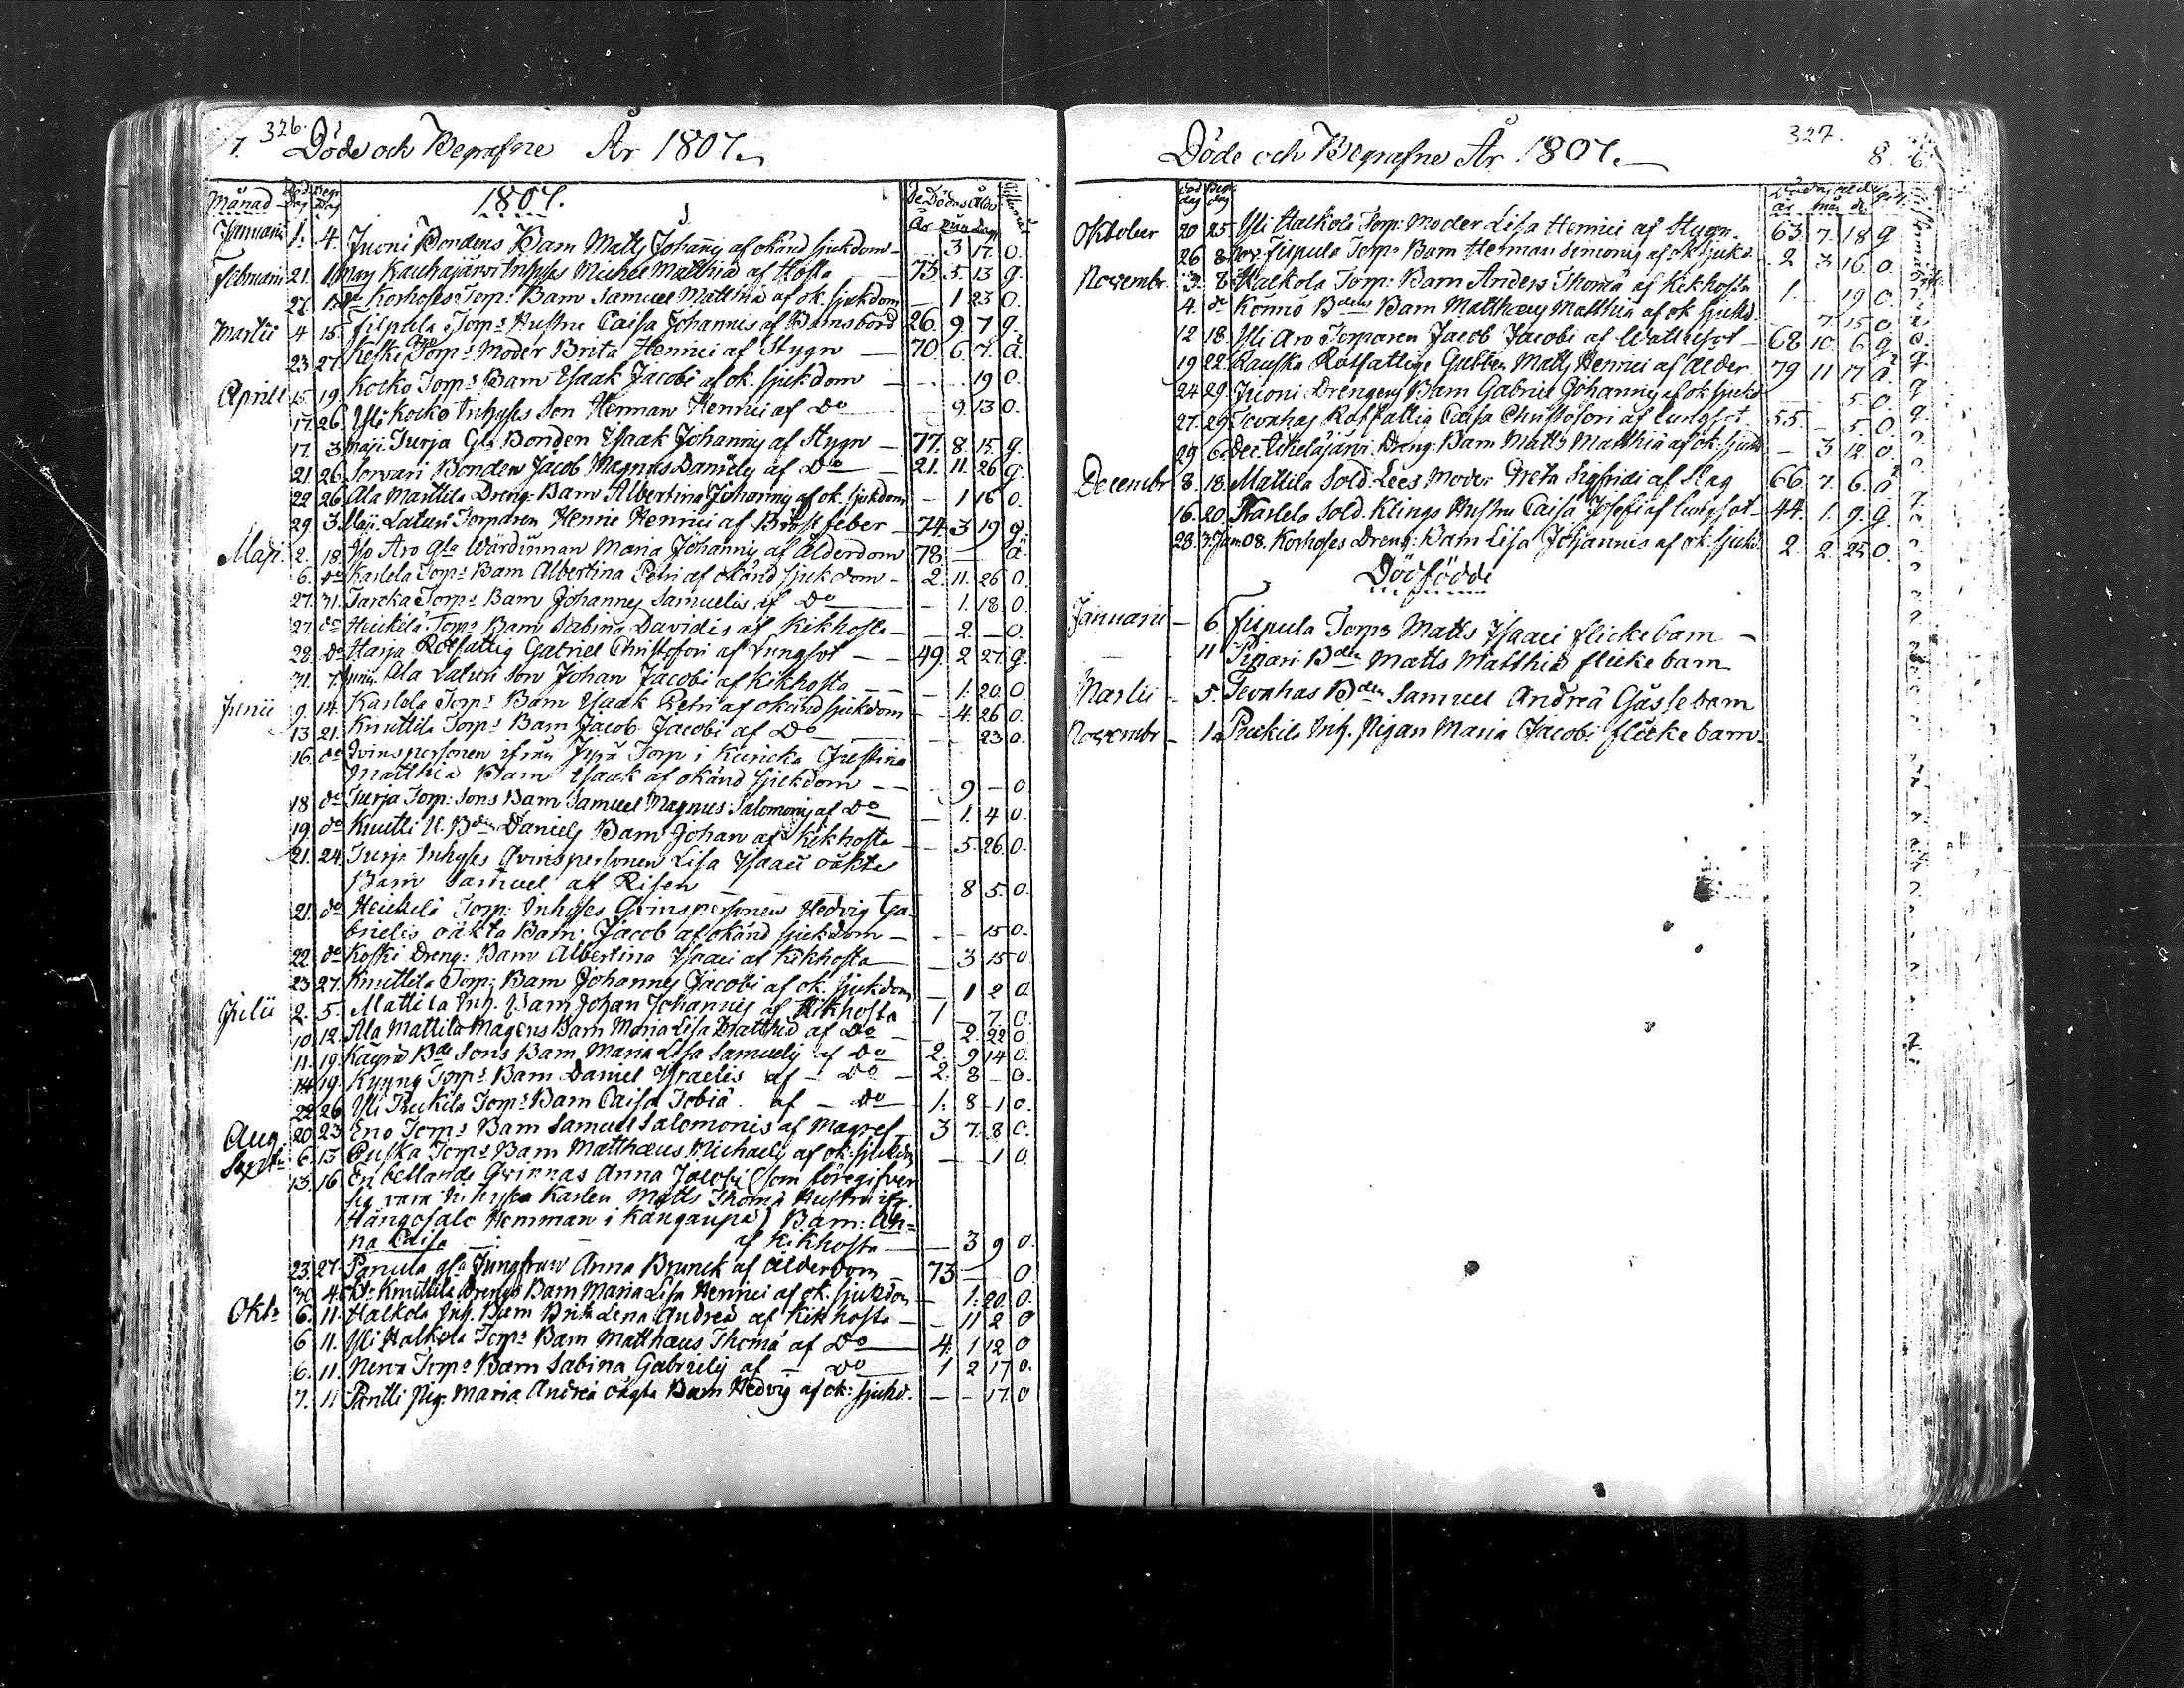 7. 326. Döde och Begrafne År 1807.
Månad Död dag Begr dag 1807. De Dödas Ålder
År mån dag
Januarii 1. 4. Juoni Bondens Barn Matts Johannis af okänd sjukdom – 3 17. o.
Februarii 21. 1 Mars Kauhajärvi Inhyses Michel Matthiæ af Hosta 75. 5. 13 g.
22. do Korhoses Torp: Barn Samuel Matthiæ af ok. sjukdom – 1 23 o.
Martii 4 15. Filpula Torps Hustru Caisa Johannis af Barnsbörd 26. 9. 7 g.
23 27. Keski Torps Moder Brita Henrici af Stygn – 70. 6. 7. ä
Aprill 15. 19. Kocko Torps Barn Isaak Jacobi af ok. sjukdom – 19 o.
17. 26. Yli Kocko Inhyses Son Herman Henrici af Do 9. 13 o.
17. 3 Maji Jurja Gla Bonden Isaak Johannis af Stygn – 77. 8. 15. g.
21. 26. Sorvari Bonden Jacob Magnus Daniels af Do – 21. 11. 26 g.
22 26 Ala Marttila Dreng: Barn Albertina Johannis af ok. sjukdom – 1 16 o.
29 3 Maji. Laturi Torparen Henric Henrici af Bröst feber – 74. 3 19 g.
Maji. 2. 18. Iso Aro Gla Wärdinnan Maria Johannis af Ålderdom 78. – ä.
6. do Karlela Torps Barn Albertina Petri af okänd sjukdom – 2. 11. 26 o.
27. 31. Jaroka Torps Barn Johannes Samuelis af Do – 1. 18. o.
27. do Heickilä Torps Barn Sabina Davidis af Kikhosta – 2. – o.
28. do Harja Rotfattig Gabriel Christofori af Lungsot – 49. 2 27. g.
31. 7 Junii. Ala Laturi Son Johan Jacobi af Kikhosta – 1. 20. o.
Junii 9. 14. Karlela Torps Barn Isaak Petri af okänd sjukdom – 4. 26 o.
13 21. Knuttila Torps Barn Jacob Jacobi af Do 23 o.
16. do Qvinspersonen ifrån Jyrä Torp i Kuricka Christina
Matthiæ Barn Isaak af okänd sjukdom – – 9 – o
18 do Jurja Torp: Sons Barn Samuel Magnus Salomonis af Do – 1. 4 o.
19 do Knutti U. Bdn Daniels Barn Johan af Kikhosta – 5. 26 o.
21. 24. Jurja Inhyses Qvinspersonen Lisa Isaaci oäkta
Barn Samuel af Risen 8 5. o.
21. do Heickilä Torp: Inhyses Qvinspersonen Hedvig Ga-
brielis oäkta Barn Jacob af okänd sjukdom – 15 o.
22. do Koski Dreng: Barn Albertina Isaaci af Kikhosta – 3 15 o
23 27. Knuttila Torp: Barn Johannes Jacobi af ok. sjukdom – 1 2 o.
Julii 2. 5. Mattila Inh. Barn Johan Johannis af Kikhosta 1 – 7. o.
10. 12. Ala Mattila Magens Barn Maria Lisa Matthiæ af Do – 2. 22 o.
11. 19. Bde Sons Barn Maria Lisa Samuelis af Do 2. 9 14 o.
14 19. Kyyny Torps Barn Daniel Israelis af – Do – 2. 8 – o.
22 26 Yli Peckila Torps Barn Caisa Tobiæ af – Do – 1. 8 – 1 o.
Aug. 20. 23. Eno Torps Barn Samuel Salomonis af Magref 3 7. 8 o.
Septr 6. 13 Puska Torps Barn Matthæus Michaelis af ok. sjukdom – – 1 o.
13. 16. En betlande Qvinnas Anna Jacobi (som föregifver
sig vara Inhyses Karlen Matts Thomæ Hustru ifr.
Hängosalo Hemman i Kangasnpä) Barn: An-
na Caisa af Kikhosta – – 3 9 o.
23. 27. Panula gla Jungfrun Anna Brunck af Ålderdom – 73 – – o.
30 4 Knuttila Drengs Barn Maria Lisa Henrici af ok. sjukdom – 1. 20. o.
Oktr 6. 11. Halkola Inh. Barn Brita Lena Andreæ af Kikhosta – – 11 2 o
6 11. Yli Halkola Torps Barn Matthæus Thomæ af Do 4. 1 12 o
6. 11. Nerva Torps Barn Sabina Gabrielis af – Do 1 2 17 o.
7. 11 Pantti Pig. Maria Andreæ oägta Barn Hedvig af ok: sjukd. – – 17. o
Döde och Begrafne År 1807. 327. 8.
Oktober 20 25. Yli Halkola Torp: Moder Lisa Henrici af Stygn. 63 7. 18 g
26 8 Nov. Filpula Torps Barn Herman Simonis af ok. sjukd. 2 3 16. o.
Novembr 3. 8 Halkola Torp: Barn Anders Thomæ af Kikhosta 1. – 19 o.
4. do Könnö Bdens Barn Matthæus Matthiæ af ok sjukd. 7. 15 o.
12 18. Yli Aro Torparen Jacob Jacobi af Wattusot – 68 10. 6 g.
19 22. Rauska Rotfattige Gubben Matts Henrici af Ålder. 79 11 17 ä
24 29. Juoni Drengens Barn Gabriel Johannis af ok sjukd. – – 5 o.
27. 29. Jevnhas Rotfattig Caisa Christofori af Lungsot. 55. – 5. o
29 6 Dec. Dreng: Barn Matts Matthiæ af ok. sjukd. – 3 12 o.
Decembr 8. 18. Mattila Sold. Lees Moder Greta Sigfridi af Slag 66 7. 6. ä
16. 20. Karlela Sold. Klings Hustru Caisa Josefi af Lungsot – 44. 1. 9. g.
28. 3 Jan 08. Korhoses Dreng: Barn Lisa Johannis af ok. sjukd. 2. 2. 25 o.
Dödfödde
Januarii – 6. Filpula Torps Matts Isaaci flicke barn –
11 Pipari Bden Matts Matthiæ flicke barn
Martii – 5. Jevnhas Bden Samuel Andreæ Gåsse barn
Novembr – 1. Peckila Inh. Pigan Maria Jacobi flicke barn.